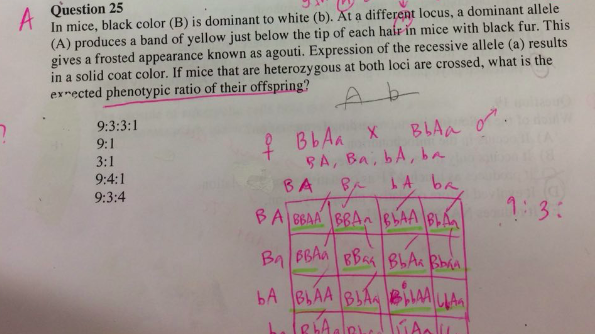 A
Question 25
In mice, black color (B) is dominant to white (b). At a different locus, a dominant allele
(A) produces a band of yellow just below the tip of each hair in mice with black fur. This
gives a frosted appearance known as agouti. Expression of the recessive allele (a) results
in a solid coat color. If mice that are heterozygous at both loci are crossed, what is the
expected phenotypic ratio of their offspring?
A b
?
9:3:3:1
9:1
3:1
9:4:1
9:3:4
♀ BbAa x BbAa ♂
BA, Ba, bA, ba
BA Ba bA ba
BA BBAA BBAa BbAA BbAa
9:3:
Ba BBAa BBaa BbAa Bbaa
bA BbAA BbAa bbAA bbAa